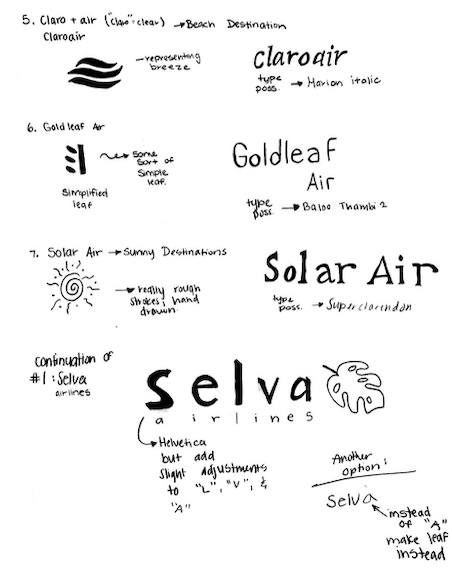 5. Claro + air ("claro" = clear) → Beach Destination
Claroair
representing
breeze
Claroair
type
poss. → Marion italic
6. Goldleaf Air
some
sort of
simple
leaf.
simplified
leaf
Goldleaf
Air
type
poss. → Baloo Thambi 2
7. Solar Air → Sunny Destinations
really rough
strokes, hand
drawn
Solar Air
type
poss. → Superclarendon
continuation of
#1: Selva
airlines
Selva
airlines
Helvetica
but add
slight adjustments
to "L", "V", &
"A"
Another
option:
Selva
instead
of "A"
make leaf
instead